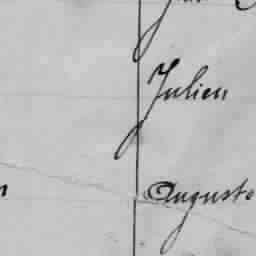 Julien
Auguste